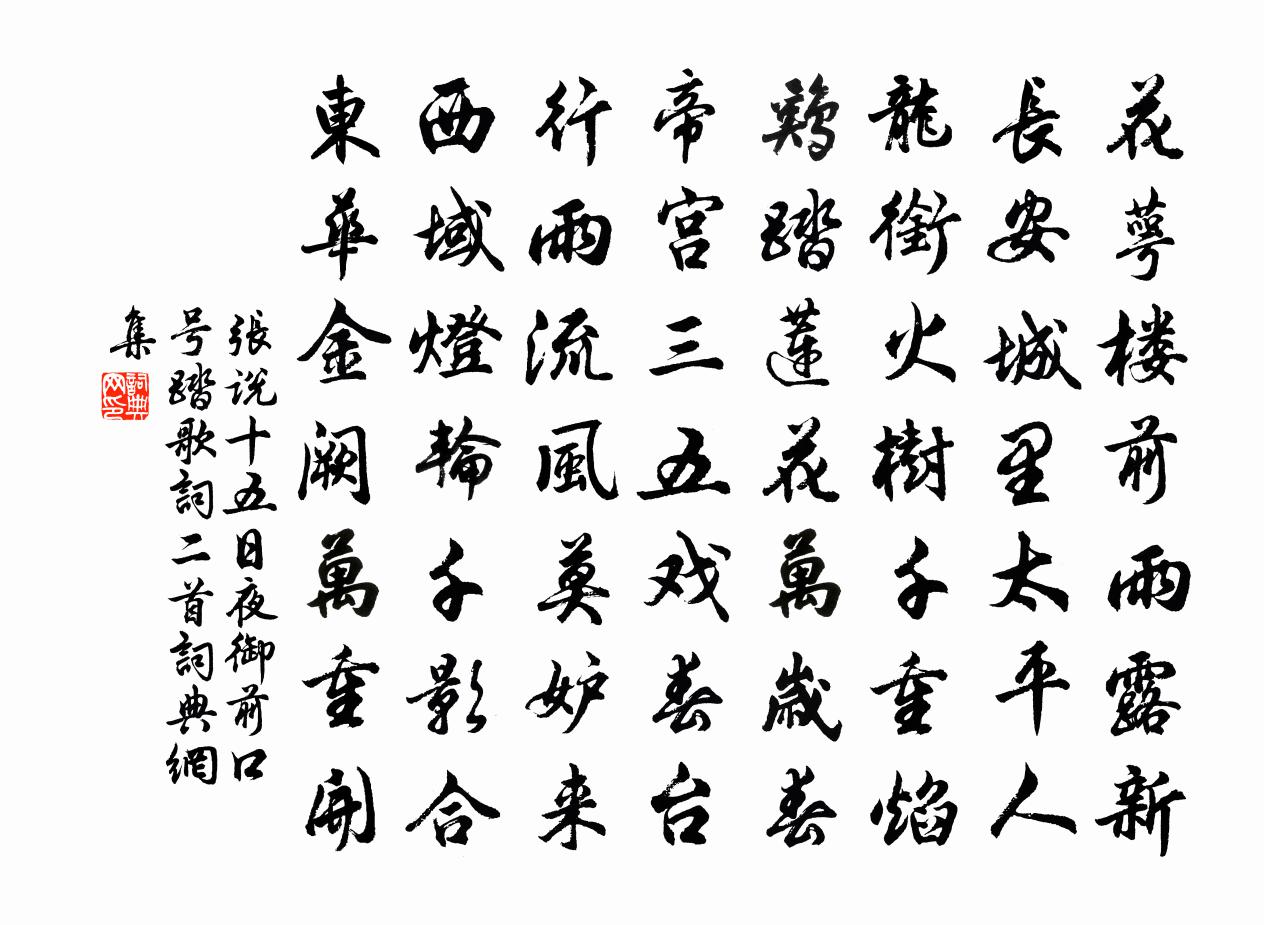 花萼楼前雨露新
長安城里太平人
龍銜火樹千重焰
鷄踏蓮花萬歲春
帝宫三五戏春台
行雨流風莫妒来
西域燈輪千影合
東華金阙萬重開
張说十五日夜御前口
号踏歌詞二首詞典網
集
詞典网印